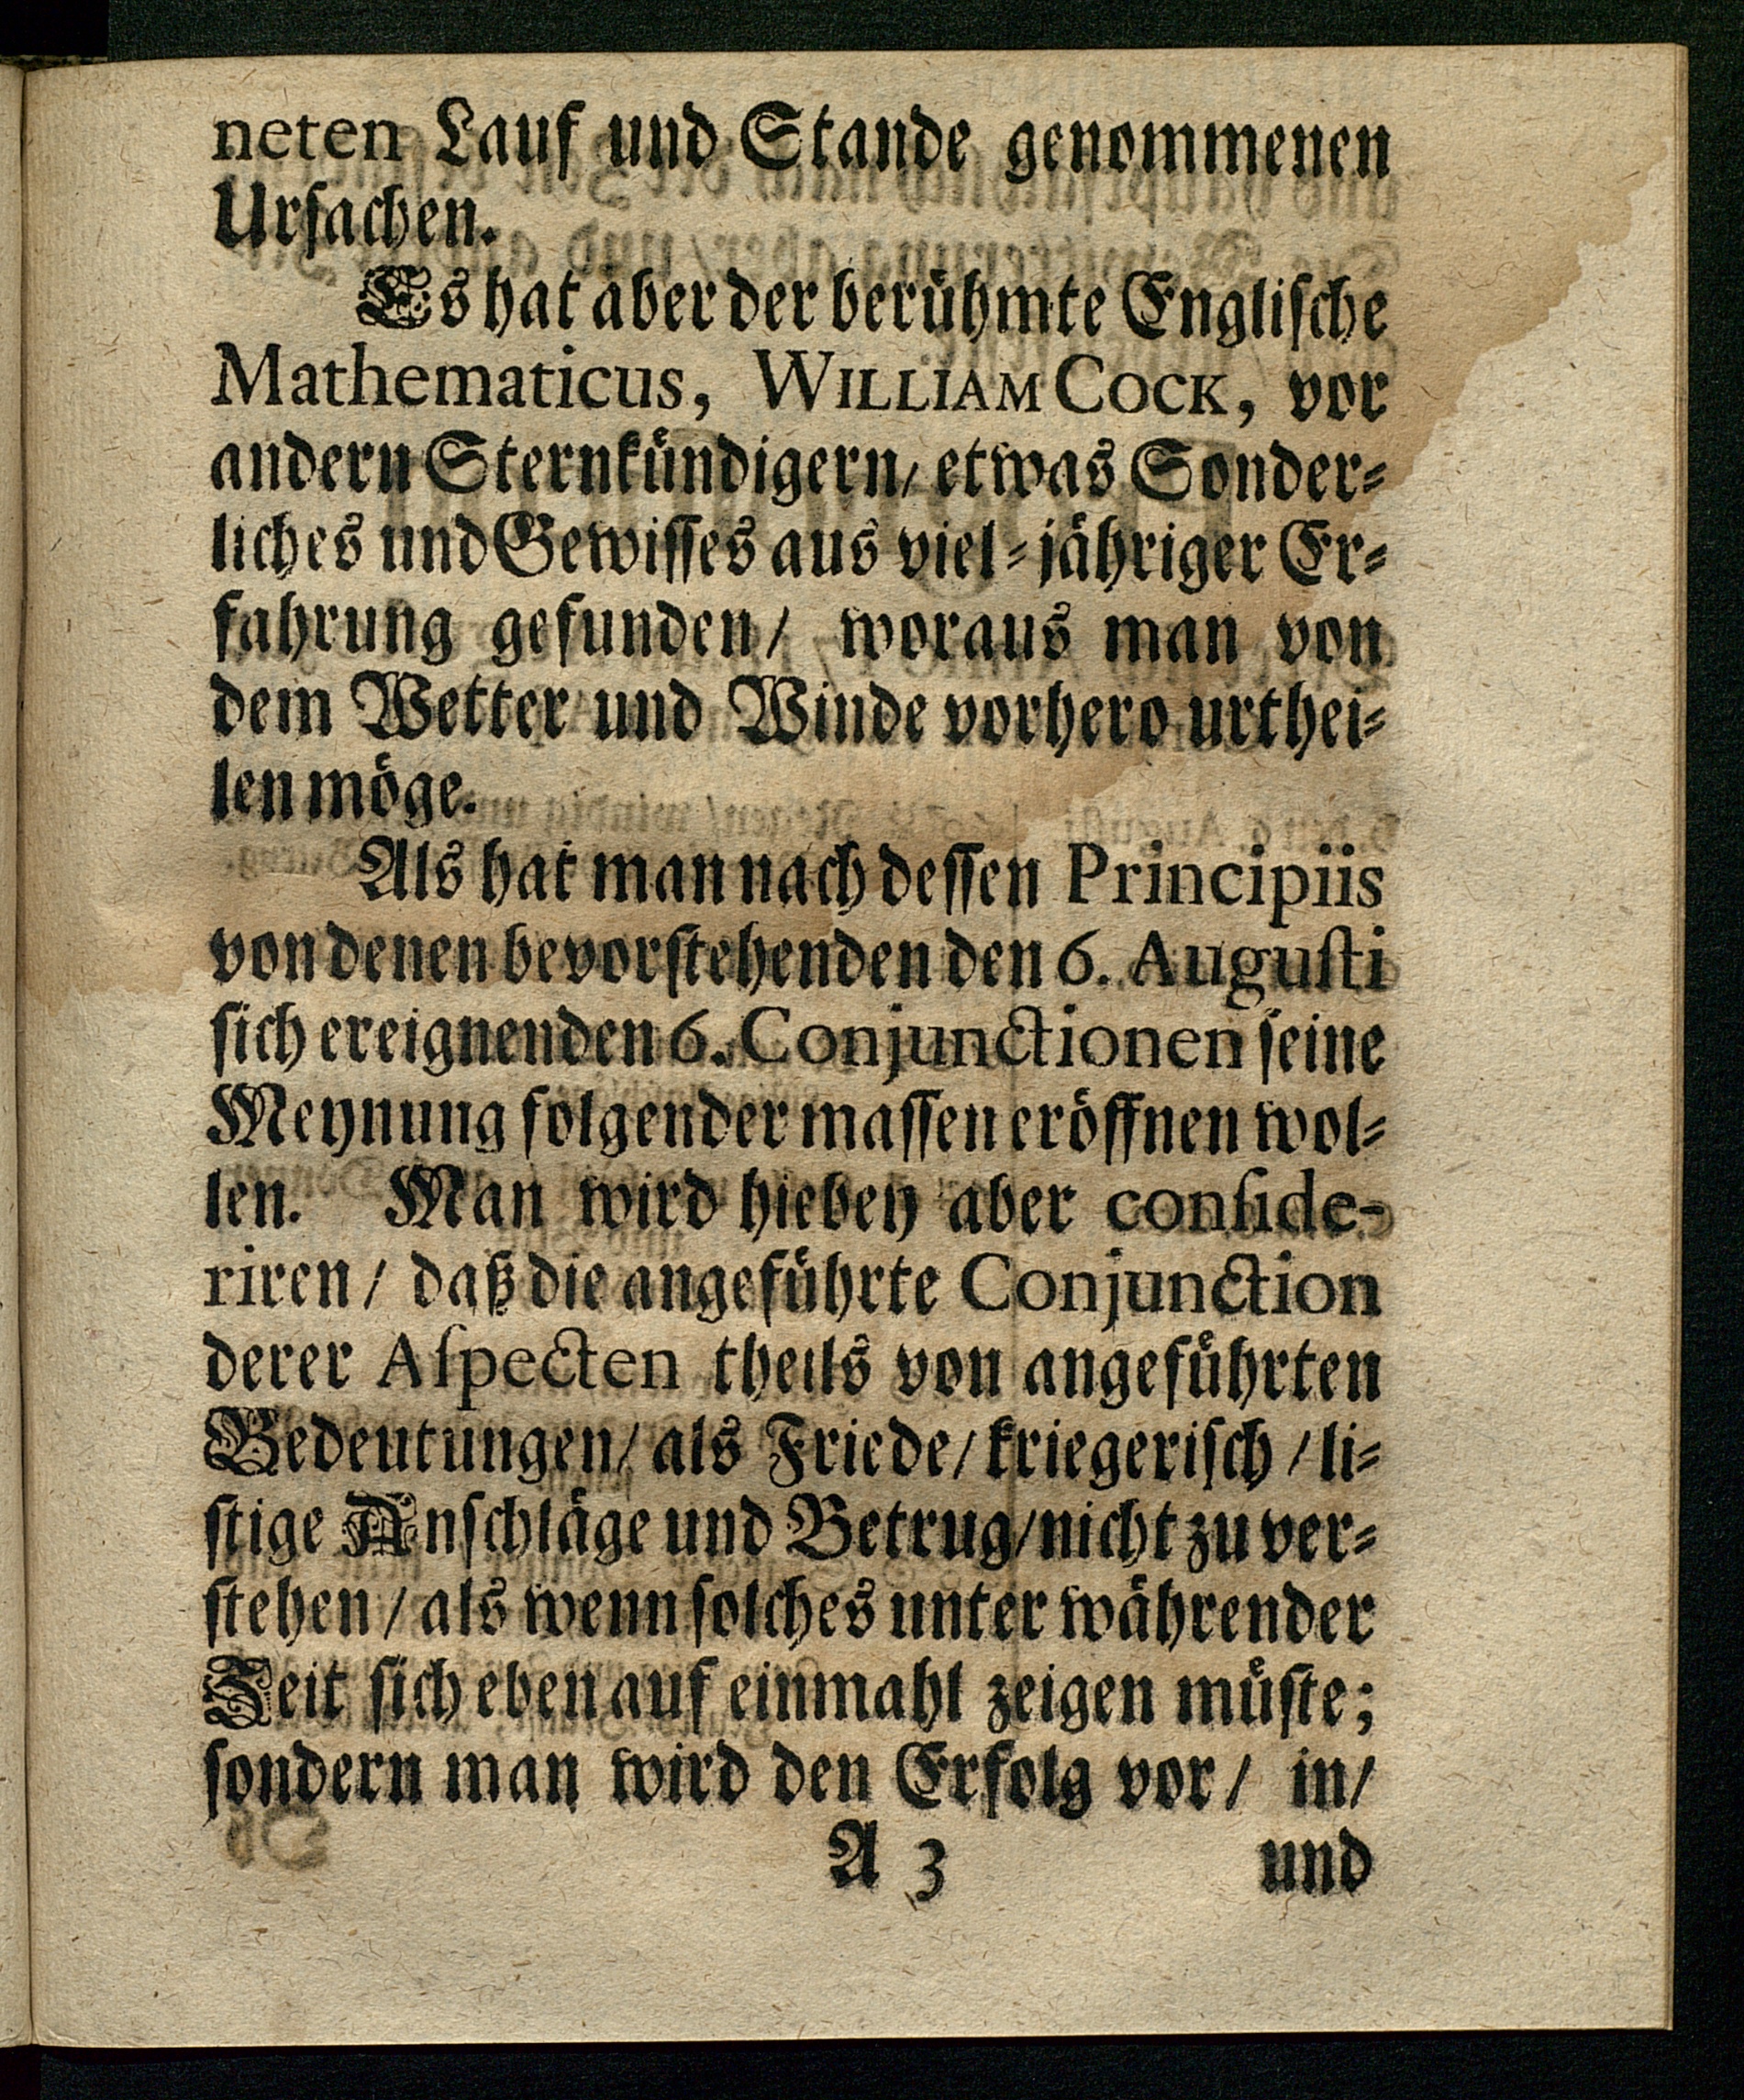 neten Lauf und Stande genommenen
Urſachen.
Es hat aber der berühmte Engliſche
Mathematicus, WILLIAM COCK, vor
andern Sternkündigern/ etwas Sonder⸗
liches und Gewiſſes aus viel⸗jähriger Er⸗
fahrung gefunden/ woraus man von
dem Wetter und Winde vorhero urthei⸗
len möge.
Als hat man nach deſſen Principiis
von denen bevorſtehenden den 6. Auguſti
ſich ereignenden 6. Conjunctionen ſeine
Meynung folgender maſſen eröffnen wol⸗
len. Man wird hiebey aber conſide-
riren/ daß die angeführte Conjunction
derer Aſpecten theils von angeführten
Bedeutungen/ als Friede/ kriegeriſch/ li⸗
ſtige Anſchläge und Betrug/ nicht zu ver⸗
ſtehen/ als wenn ſolches unter währender
Zeit ſich eben auf einmahl zeigen müſte;
ſondern man wird den Erfolg vor/ in/
A 3 und